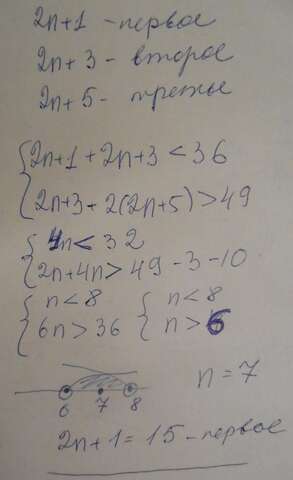 2n+1 - первое
2n+3 - второе
2n+5 - третье
{2n+1+2n+3<36
{2n+3+2(2n+5)>49
{4n<32
{2n+4n>49-3-10
{n<8 {n<8
{6n>36 {n>6
n=7
6 7 8
2n+1=15 - первое